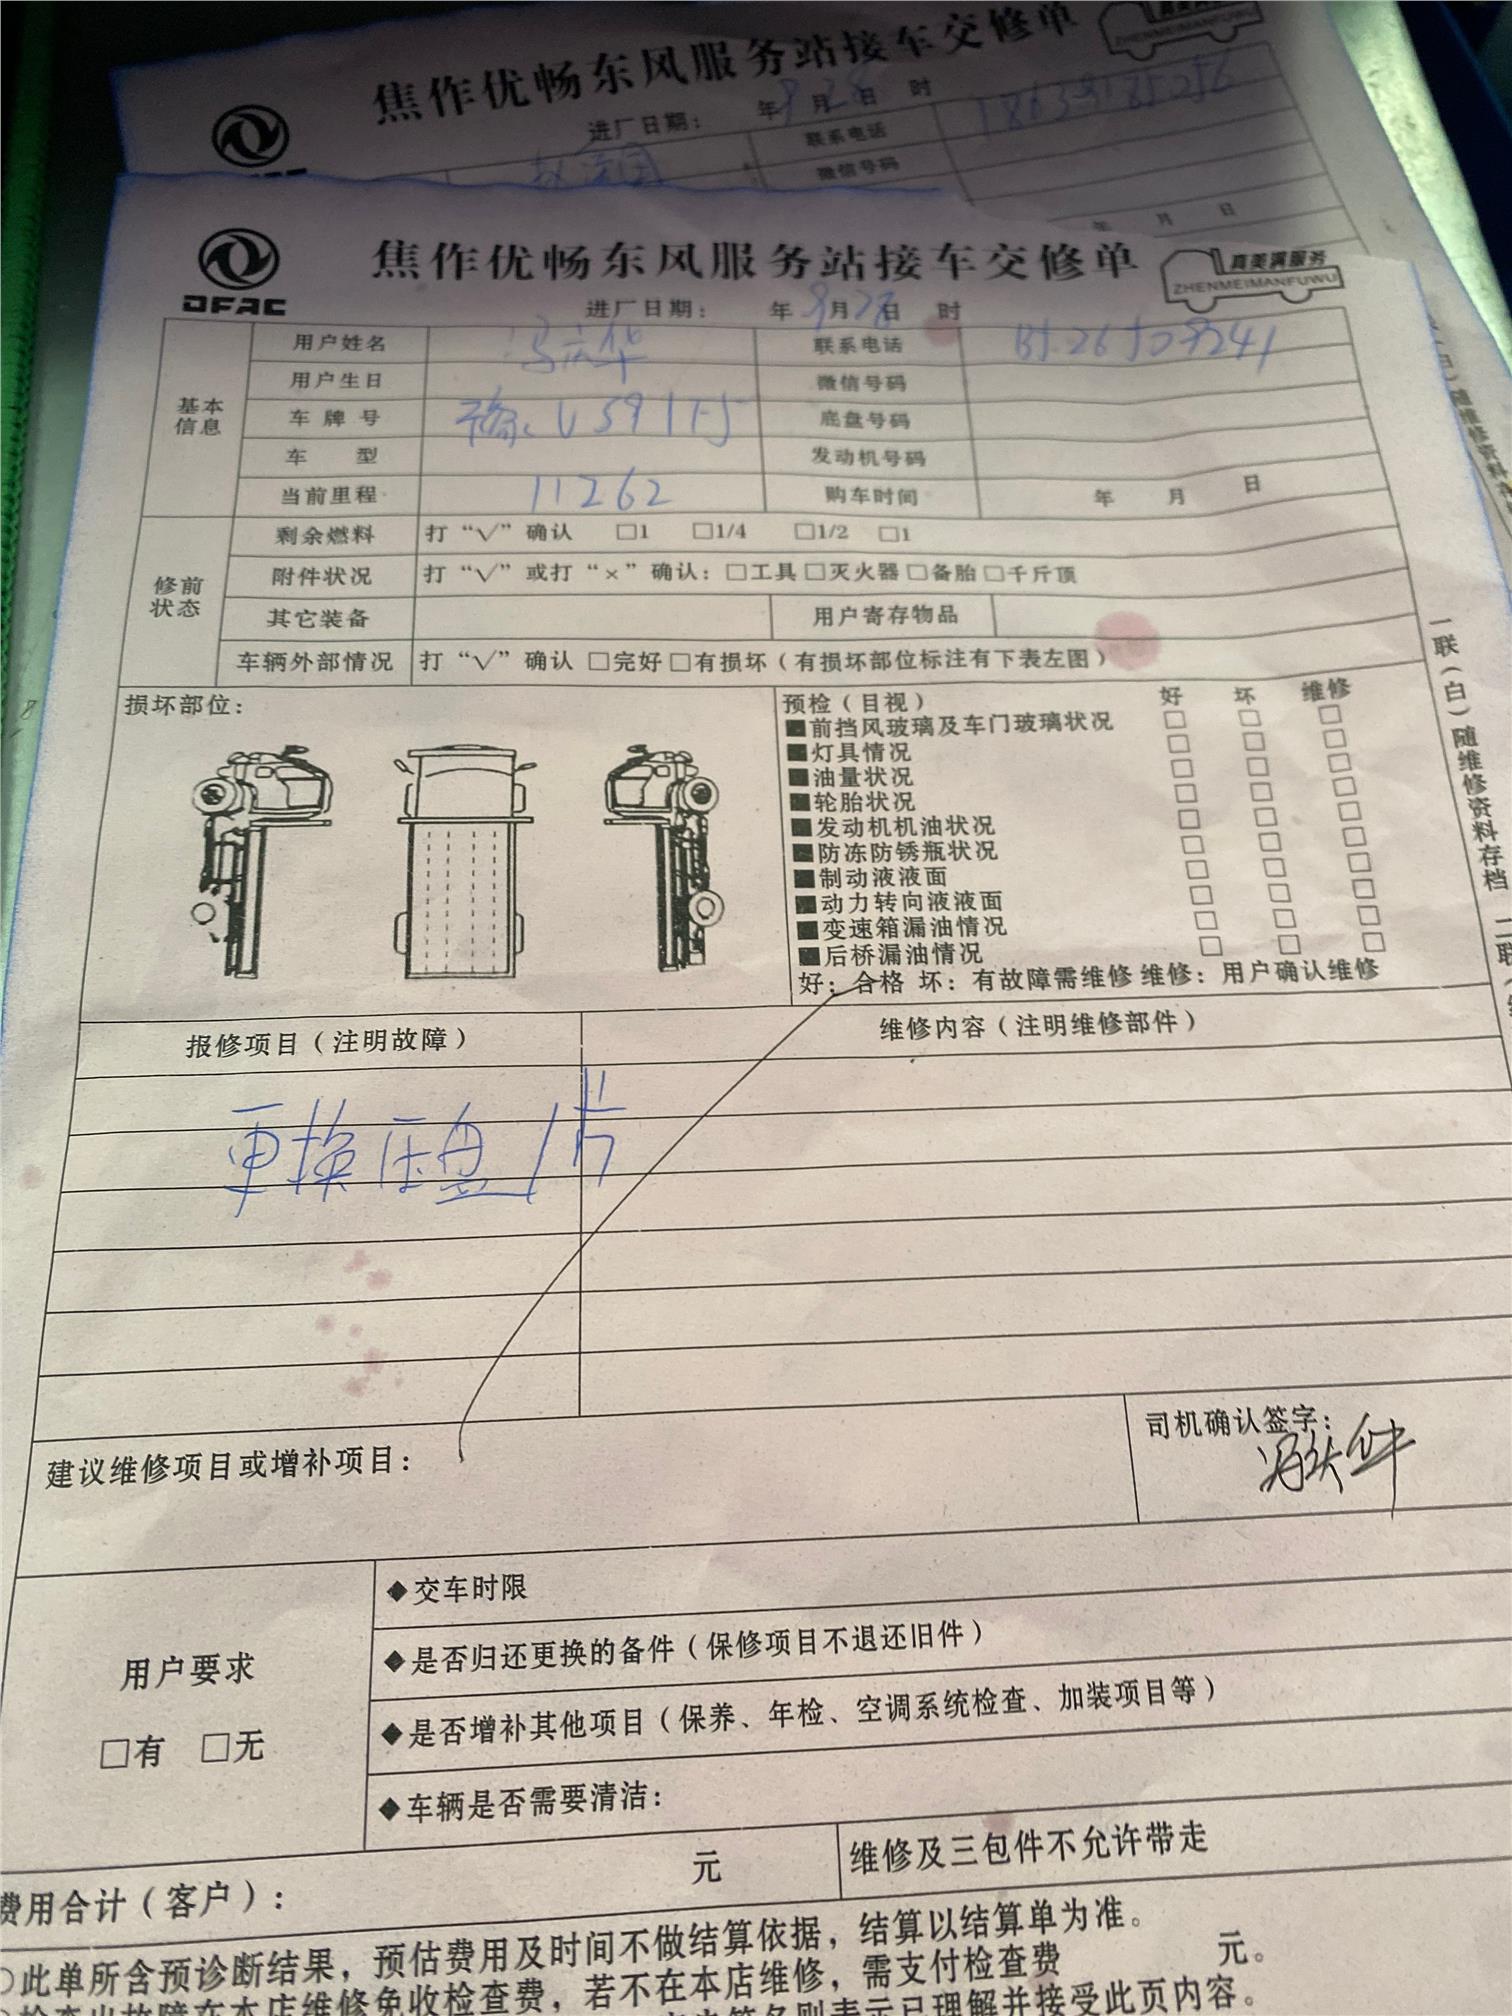 焦作优畅东风服务站接车交修单
ZHENMEIMANFUWU
进厂日期： 年9月28日 时
联系电话 18639185256
微信号码
年 月 日
DFAC
焦作优畅东风服务站接车交修单
真美满服务
ZHENMEIMANFUWU
进厂日期： 年9月28日 时
基本信息
用户姓名 联系电话
用户生日 微信号码
车牌号 底盘号码
车 型 发动机号码
当前里程 11262 购车时间 年 月 日
修前状态
剩余燃料 打“√”确认 □1 □1/4 □1/2 □1
附件状况 打“√”或打“×”确认：□工具□灭火器□备胎□千斤顶
其它装备 用户寄存物品
车辆外部情况 打“√”确认 □完好□有损坏（有损坏部位标注有下表左图）
损坏部位：
预检（目视） 好 坏 维修
■前挡风玻璃及车门玻璃状况 □ □ □
■灯具情况 □ □ □
■油量状况 □ □ □
■轮胎状况 □ □ □
■发动机机油状况 □ □ □
■防冻防锈瓶状况 □ □ □
■制动液液面 □ □ □
■动力转向液液面 □ □ □
■变速箱漏油情况 □ □ □
■后桥漏油情况 □ □ □
好：合格 坏：有故障需维修 维修：用户确认维修
一联（白）随维修资料存档 二联
报修项目（注明故障） 维修内容（注明维修部件）
更换压盘/片
建议维修项目或增补项目：
司机确认签字：
用户要求
□有 □无
◆交车时限
◆是否归还更换的备件（保修项目不退还旧件）
◆是否增补其他项目（保养、年检、空调系统检查、加装项目等）
◆车辆是否需要清洁：
费用合计（客户）： 元 维修及三包件不允许带走
○此单所含预诊断结果，预估费用及时间不做结算依据，结算以结算单为准。
检查出故障在本店维修免收检查费，若不在本店维修，需支付检查费 元。
则表示已理解并接受此页内容。